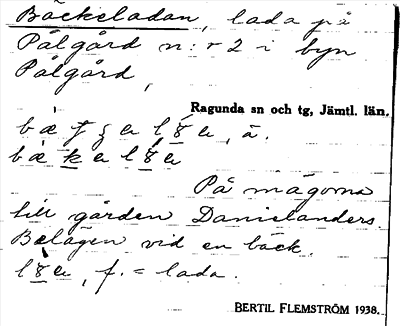 Bäckeladan, lada på
Pålgård n:r 2 i byn
Pålgård,
Ragunda sn och tg, Jämtl. län.
På mägorna
till gården Danielanders.
Belägen vid en bäck.
f. = lada.
BERTIL FLEMSTRÖM 1938.